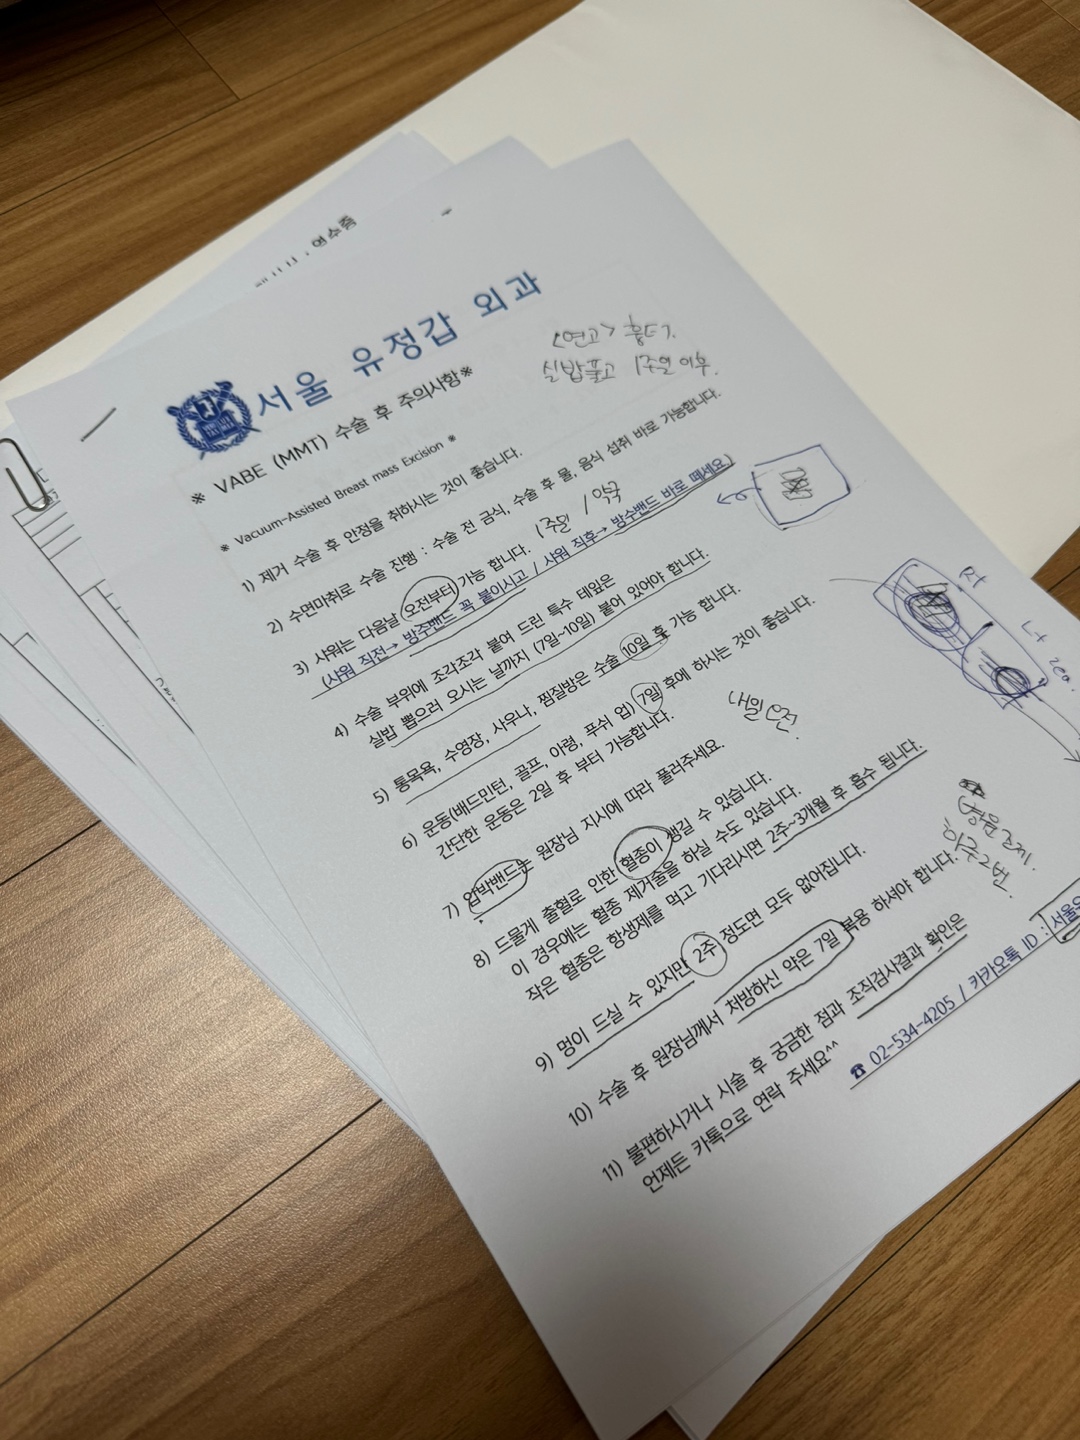 영수증
서울 유정갑 외과
<연고> 흉터
실밥풀고 1주일 이후.
※ VABE (MMT) 수술 후 주의사항※
※ Vacuum-Assisted Breast mass Excision ※
1) 제거 수술 후 안정을 취하시는 것이 좋습니다.
2) 수면마취로 수술 진행 : 수술 전 금식, 수술 후 물, 음식 섭취 바로 가능합니다.
1주일 / 약국
3) 샤워는 다음날 오전부터 가능 합니다.
(샤워 직전→ 방주밴드 꼭 붙이시고 / 샤워 직후→ 방수밴드 바로 떼세요.)
4) 수술 부위에 조각조각 붙여 드린 특수 테잎은
실밥 뽑으러 오시는 날까지 (7일~10일) 붙어 있어야 합니다.
5) 통목욕, 수영장, 사우나, 찜질방은 수술 10일 후 가능 합니다.
6) 운동(배드민턴, 골프, 아령, 푸쉬 업) 7일 후에 하시는 것이 좋습니다.
간단한 운동은 2일 후 부터 가능합니다.
내일 오전.
7) 압박밴드는 원장님 지시에 따라 풀러주세요.
8) 드물게 출혈로 인한 혈종이 생길 수 있습니다.
이 경우에는 혈종 제거술을 하실 수도 있습니다.
작은 혈종은 항생제를 먹고 기다리시면 2주~3개월 후 흡수 됩니다.
9) 멍이 드실 수 있지만 2주 정도면 모두 없어집니다.
하루2번.
10) 수술 후 원장님께서 처방하신 약은 7일 복용 하셔야 합니다.
11) 불편하시거나 시술 후 궁금한 점과 조직검사결과 확인은
언제든 카톡으로 연락 주세요^^
☎ 02-534-4205 / 카카오톡 ID : 서울유